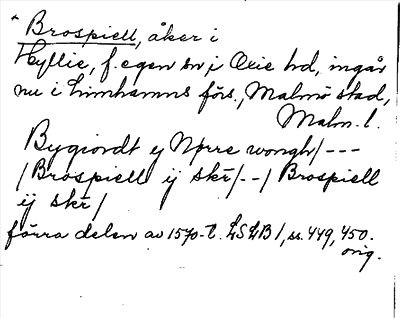 * Brospiell, åker i
Hyllie, f. egen sn, i Oxie hd, ingår
nu i Limhamns förs., Malmö stad,
Malm. l.
Bygiordt ij Nörre wongh/---
/Brospiell ij skr/--/ Brospiell
ij skr/
förra delen av 1570-t. LSLB 1, ss. 449, 450.
orig.